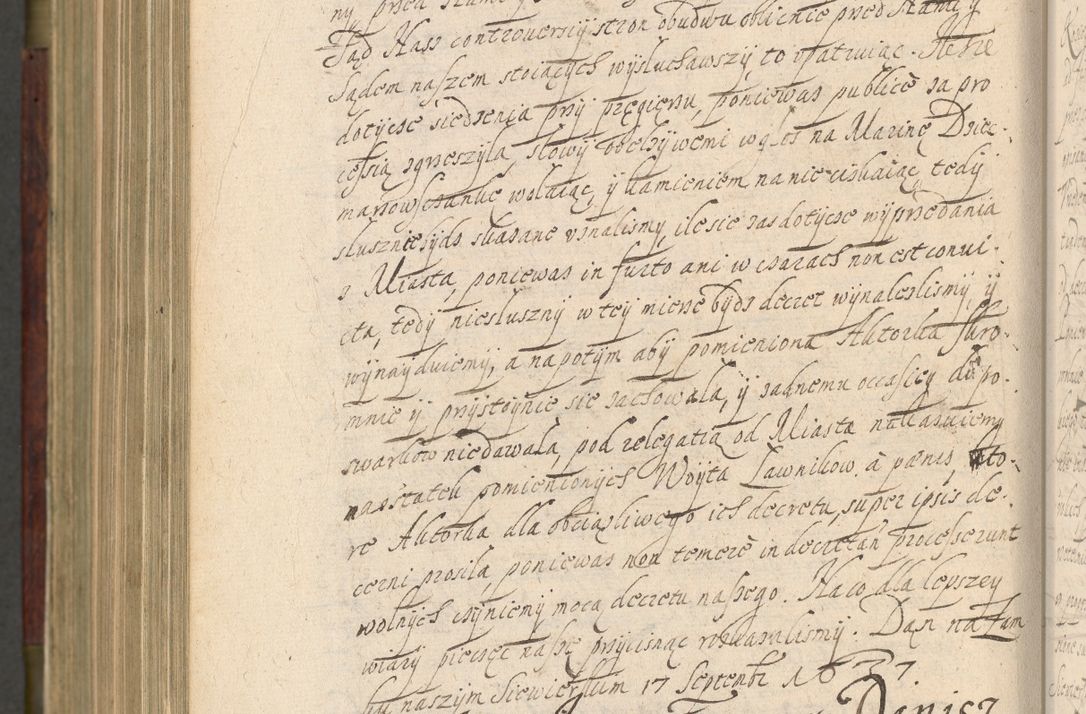 ny przed
Sąd Nasz controversiy stron obudwu oblicznie przed Nami y
Sądem naszem stoiących wysłuchawszy to upatruiąc. Że nie
dotycze siedzenia przy pręgieru, poniewas publicè sa pro
cessią zgrzeszyła, słowy obelzywemi w głos na Marinę Dziec-
marowsczankę wołaiąc, y kamieniem na nie ciskaiąc tedy
słusznie iyds skasane uznalismy, ile sie zas dotycze wyprzedania
z Miasta, poniewas in furto ani w czarach non est convi-
cta, tedy niesłuszny w tey mierze byds decret wynaleslismy, y
wynayduiemy, a napotym aby pomieniona Aktorka skro-
mnie y przystoynie sie zachowała, y zadnemu occasiey do po-
swarkow niedawała, pod relegatią od Miasta nakazuiemy
naostatek pomienionych Woyta Ławnikow à pænis, kto-
re Aktorka dla obciazliwego ich decretu, super ipsis de-
cerni prosiła, poniewas non temerè in decretan processerunt
wolnych czyniemy mocą decretu naszego. Na co dla lepszey
wiary pieczęć naszę przycisnąc roskasalismy. Dan na Zam
ku naszym Siewierskim 17 Septembr 1637